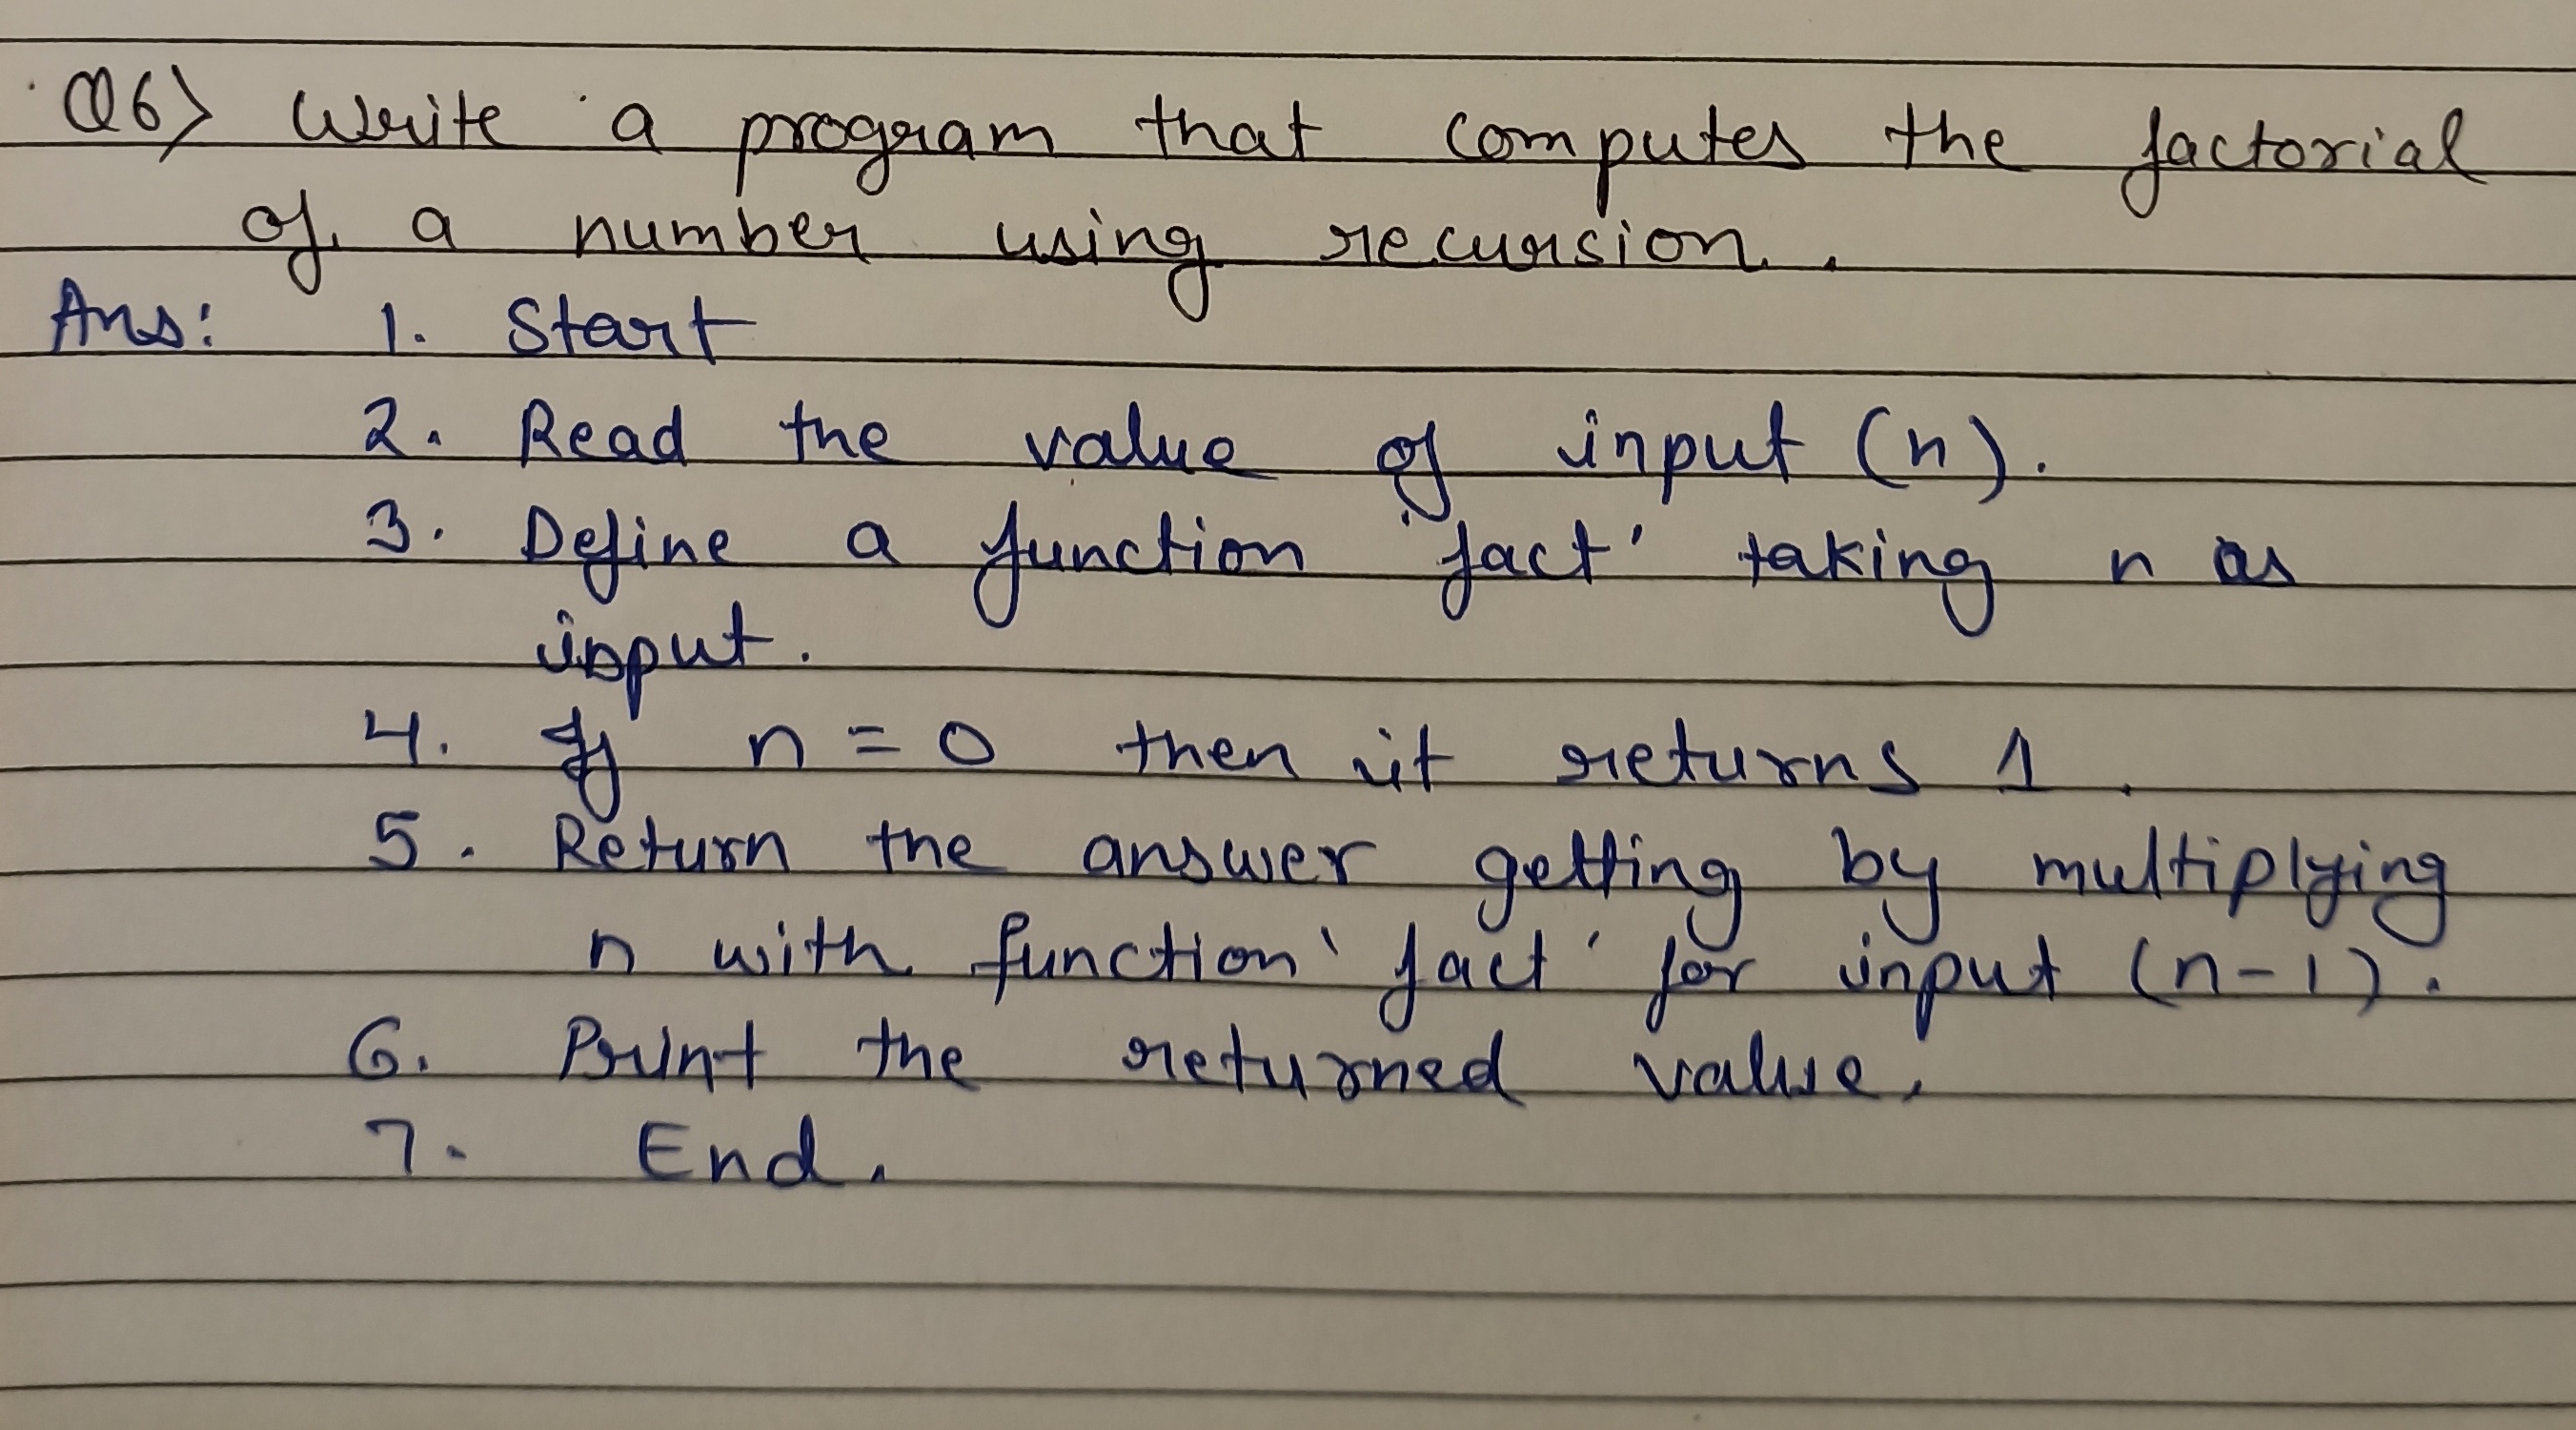 Q6> Write a program that computes the factorial
of a number using recursion.
Ans: 1. Start
2. Read the value of input (n).
3. Define a function 'fact' taking n as
input.
4. If n = 0 then it returns 1.
5. Return the answer getting by multiplying
n with function 'fact' for input (n-1).
6. Print the returned value.
7. End.